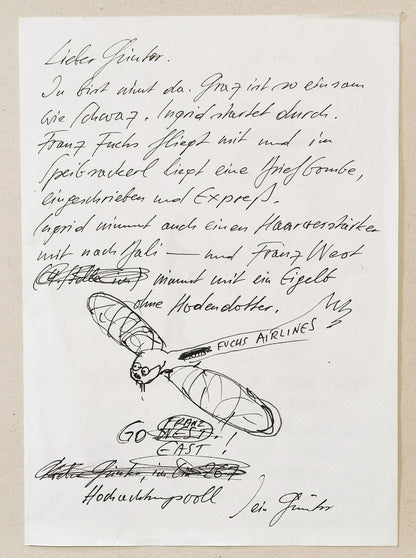 Lieber Günter.
Du bist nicht da. Graz ist so einsam
wie Schwaz. Ingrid startet durch.
Franz Fuchs fliegt mit und im
Speibsackerl liegt eine Briefbombe,
eingeschrieben und Expreß.
Ingrid nimmt auch einen Haarverstärker
mit nach Mali — und Franz West
nimmt mit ein Eigelb
ohne Hodendotter.
FUCHS AIRLINES
GO WEST !
FRANZ
EAST
Hochachtungsvoll
Dein Günter